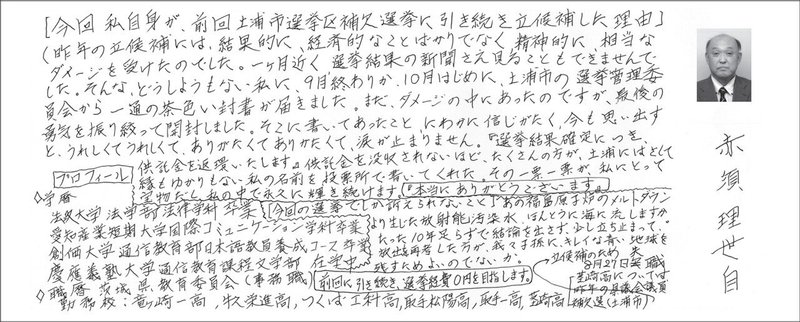 [今回 私自身が、前回土浦市選挙区補欠選挙に引き続き立候補した理由]
(昨年の立候補には、結果的に、経済的なことばかりでなく、精神的に、相当な
ダメージを受けたのでした。一ヶ月近く 選挙結果の新聞さえ見ることもできませんで
した。そんな、どうしようもない私に、9月終わりか、10月はじめに、土浦市の選挙管理委
員会から一通の茶色い封書が届きました。まだ、ダメージの中にあったのですが、最後の
勇気を振り絞って開封しました。そこに書いてあったこと、にわかに信じがたく、今も思い出す
と、うれしくてうれしくて、ありがたくてありがたくて、涙が止まりません。『選挙結果確定につき、
供託金を返還いたします』供託金を没収されないほど、たくさんの方が、土浦にはとして
縁もゆかりもない私の名前を投票所で書いてくれた。その一票一票が、私にとって
宝物だし 私の中で永久に輝き続けます『本当にありがとうございます』
プロフィール
◇学歴
法政大学 法学部法律学科 卒業
愛知産業短期大学国際コミュニケーション学科卒業
創価大学通信教育部日本語教員養成コース卒業
慶應義塾大学通信教育課程文学部 在学中
◇職歴 茨城県教育委員会(事務職)
勤務校:竜ヶ崎一高, 牛久栄進高, つくば工科高, 取手松陽高, 取手一高, 茎崎高
[今回の選挙でしか訴えられないこと]あの福島原子炉のメルトダウン
より生じた放射能汚染水、ほんとうに海に流しますか。
たった10年足らずで結論を出さず、少し立ち止まって、
放出再考した方が、我々子孫に、キレイな青い地球を
残すためよいのでないか。
前回に引き続き、選挙経費0円を目指します。
立候補のため
8月27日失職
茎崎高については
昨年の県議会議員
補欠選(土浦市)
赤須理世自